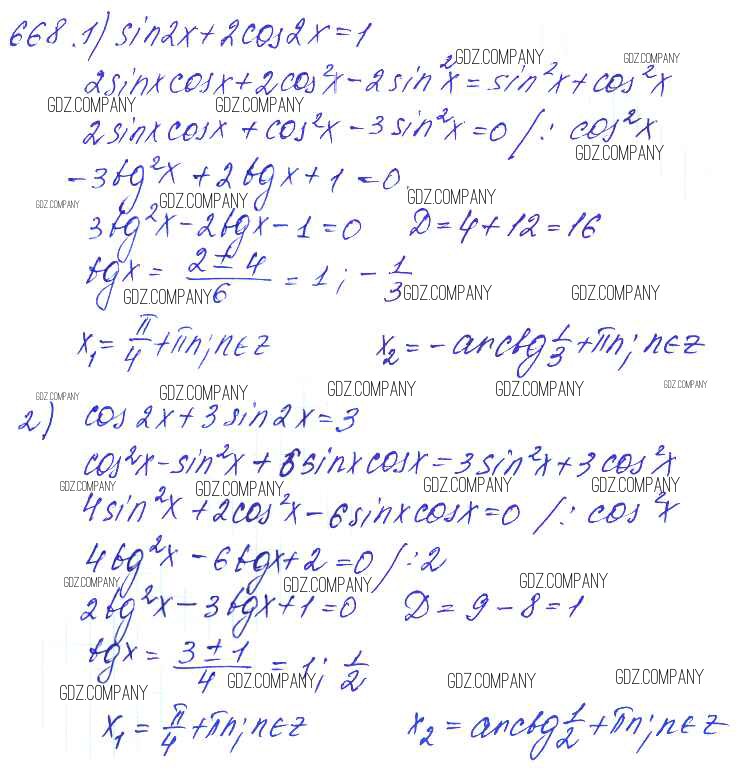 668.1) sin2x + 2cos2x = 1
GDZ.COMPANY GDZ.COMPANY
2sinxcosx + 2cos²x - 2sin²x = sin²x + cos²x
GDZ.COMPANY GDZ.COMPANY
2sinxcosx + cos²x - 3sin²x = 0 /: cos²x
GDZ.COMPANY
-3tg²x + 2tgx + 1 = 0.
GDZ.COMPANY GDZ.COMPANY GDZ.COMPANY
3tg²x - 2tgx - 1 = 0 D = 4 + 12 = 16
tgx = (2 ± 4)/6 = 1; -1/3
GDZ.COMPANY GDZ.COMPANY GDZ.COMPANY
x₁ = π/4 + πn; n∈Z x₂ = -arctg 1/3 + πn; n∈Z
GDZ.COMPANY GDZ.COMPANY GDZ.COMPANY GDZ.COMPANY GDZ.COMPANY
2) cos2x + 3sin2x = 3
cos²x - sin²x + 6sinxcosx = 3sin²x + 3cos²x
GDZ.COMPANY GDZ.COMPANY GDZ.COMPANY GDZ.COMPANY
4sin²x + 2cos²x - 6sinxcosx = 0 /: cos²x
4tg²x - 6tgx + 2 = 0 /:2
GDZ.COMPANY GDZ.COMPANY GDZ.COMPANY
2tg²x - 3tgx + 1 = 0 D = 9 - 8 = 1
tgx = (3 ± 1)/4 = 1; 1/2
GDZ.COMPANY GDZ.COMPANY GDZ.COMPANY GDZ.COMPANY
x₁ = π/4 + πn; n∈Z x₂ = arctg 1/2 + πn; n∈Z